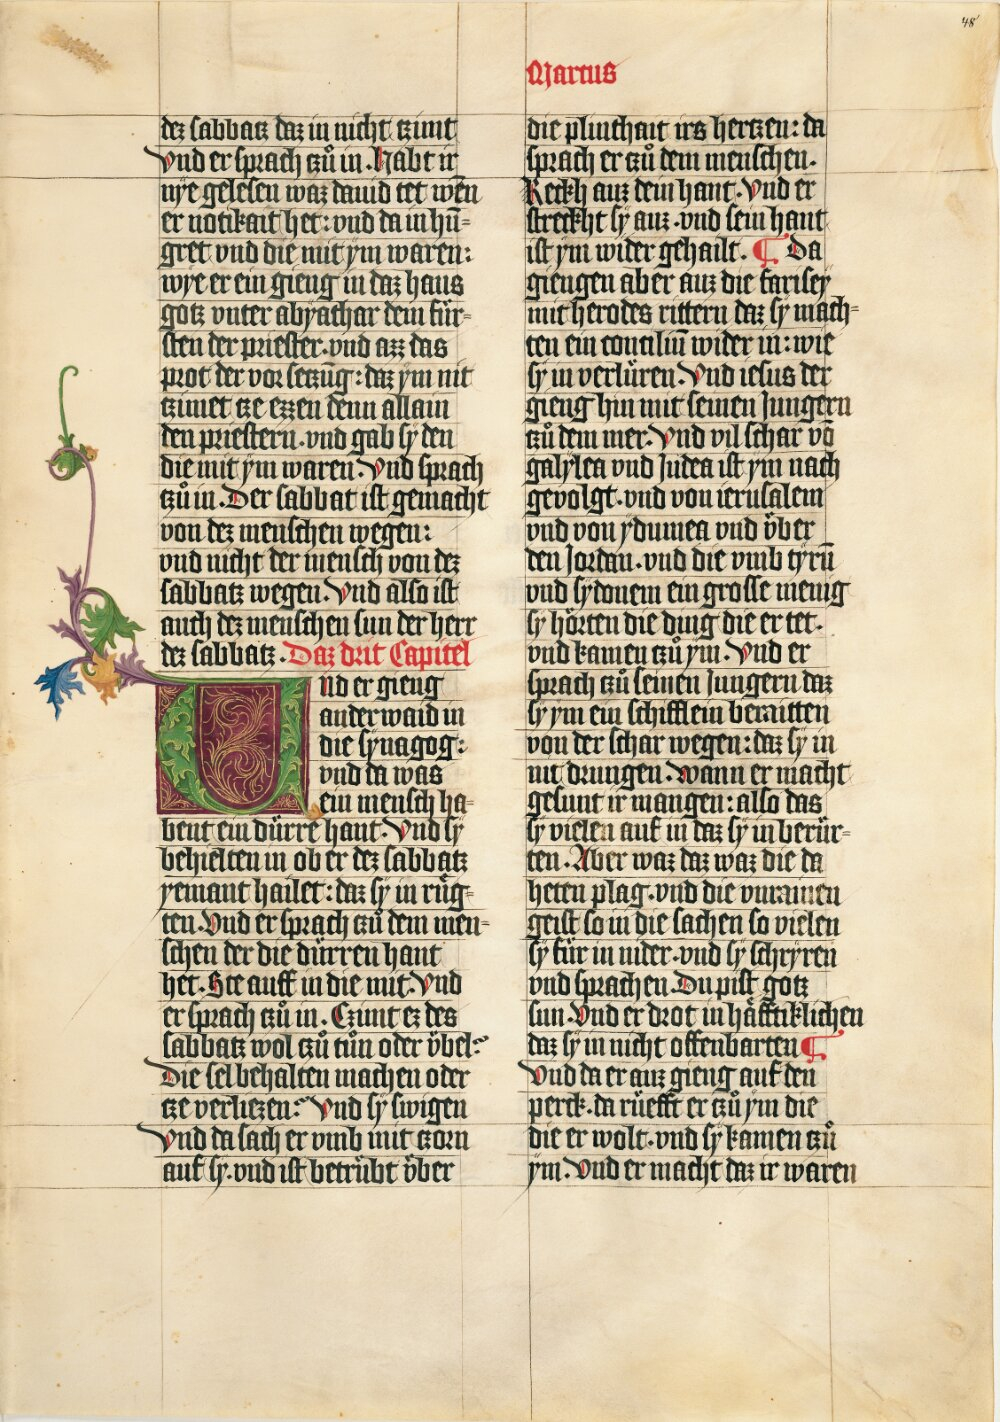 48
Marcus
dez sabbatz daz in nicht tzimt
Vnd er sprach tzů in. Habt ir
nye gelesen waz dauid tet wēn
er notikait het: vnd da in hū=
gret vnd die mit ym waren:
wye er ein gieng in daz haus
gotz vnter abyathar dem für=
sten der priester. vnd azz das
prot der vor setzūg: daz ym nit
tzimet tze ezzen denn allain
den priestern. vnd gab sy den
die mit ym waren. Vnd sprach
tzů in. Der sabbat ist gemacht
von dez menschen wegen:
vnd nicht der mensch von dez
sabbatz wegen. Vnd also ist
auch dez menschen sun der herr
dez sabbatz. Daz drit Capitel
Vnd er gieng
anderwaid in
die synagog:
vnd da was
ein mensch ha=
bent ein dürre hant. Vnd sy
behielten in ob er dez sabbatz
yemant hailet: daz sy in rüg=
ten. Vnd er sprach tzů dem men=
schen der die dürren hant
het. Ste auff in die mit. Vnd
er sprach tzů in. Czimt ez des
sabbatz wol tzů tůn oder vbel?
Die sel behalten machen oder
tze verliezen? Vnd sy swigen
Vnd da sach er vmb mit tzorn
auf sy. vnd ist betrübt vber
die plinthait irs hertzen: da
sprach er tzů dem menschen.
Reckh auz dein hant. Vnd er
streckht sy auz. vnd sein hant
ist ym wider gehailt. ¶ Da
giengen aber auz die farisey
mit herodes rittern daz sy mach=
ten ein conciliū wider in: wie
sy in verlüren. Vnd iesus der
gieng hin mit seinen Jungern
tzů dem mer. Vnd vil schar vō
galylea vnd Judea ist ym nach
geuolgt. vnd von ierusalem
vnd von ydumea vnd vber
den Jordan. vnd die vmb tyrū
vnd sydonem ein grosse menig
sy hörten die ding die er tet.
vnd kamen tzů ym. Vnd er
sprach tzů seinen Jungern daz
sy ym ein schifflein beraitten
von der schar wegen: daz sy in
nit drungen. Wann er macht
gesunt ir mangen: also das
sy vielen auf in daz sy in berür=
ten. Aber waz daz waz die da
heten plag. vnd die vnrainen
geist so in die sachen so vielen
sy für in nider. vnd sy schryren
vnd sprachen. Du pist gotz
sun. Vnd er drot in häfftiklichen
daz sy in nicht offenbarten ¶
Vnd da er auz gieng auf den
perck. da rüefft er tzů ym die
die er wolt. vnd sy kamen tzů
ym. Vnd er macht daz ir waren